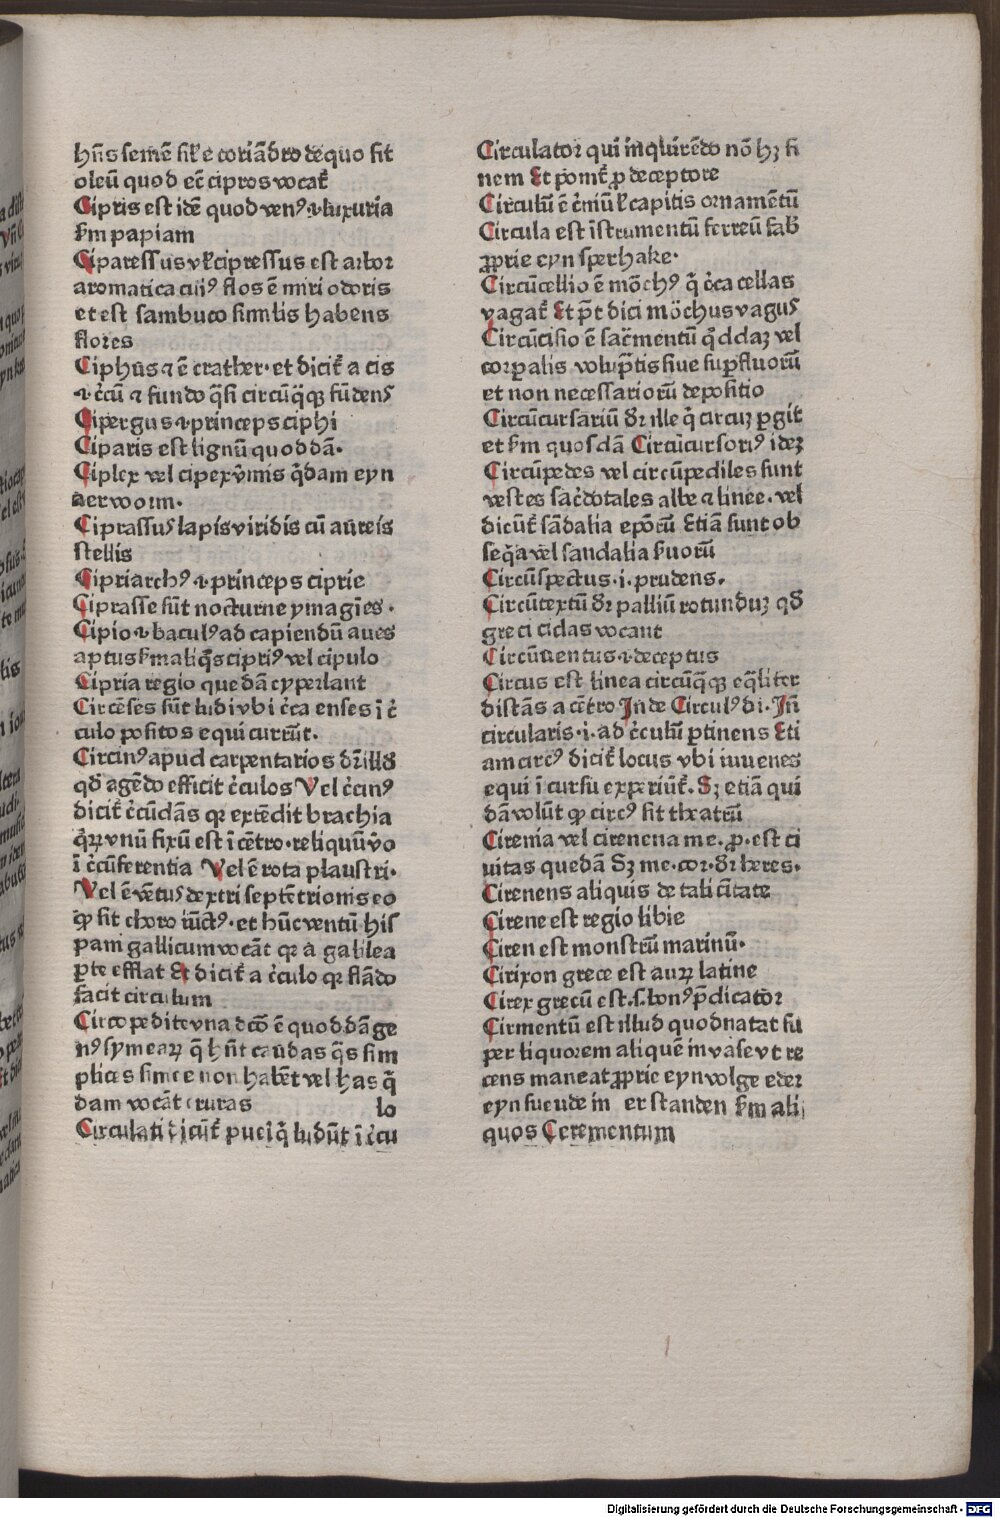 hn̄s semē sil'e coriādro de quo fit
oleū quod eē cipros vocat̄
Cipris est idē quod venꝰ ⁊ luxuria
km papiam
Ciparessus vel cipressus est arbor
aromatica cuiꝰ flos ē miri odoris
et est sambuco similis habens
flores
Ciphus ⁊ ē crather · et dicit̄ a cis
⁊ c̄cū ⁊ fundo q̄si circūq̄qꝫ fūdens
Cipergus ⁊ princeps ciphi
Ciparis est lignū quoddā ·
Ciplex vel ciper v̄mis q̄dam eyn
Ciprassus lapis viridis cū aūreis
stellis
Cipriarchꝰ ⁊ princeps ciprie
Ciprasse sūt nocturne ymagīes ·
Cipio ⁊ baculꝰ ad capiendū aues
aptus km aliq̄s cipriꝰ vel cipulo
Cipria regio quedā cyperlant
Circēses sūt ludi vbi c̄ca enses ī c̄
culo positos equi currūt ·
Circinꝰ apud carpentarios dr̄ illd̄
qd̄ agēdo efficit c̄culos Vel c̄cinꝰ
dicit̄ c̄cūdās qꝛ extēdit brachia
q̄ꝝ vnū fixū est ī cētro · reliquū v̄o
ī c̄cūferentia Vel ē rota plaustri ·
Vel ē vētus dextri septētrionis eo
ꝙ sit choro iūctꝰ · et hūc ventū his
pam gallicum vocāt qꝛ a gabilea
ꝑte efflat Et dicit̄ a c̄culo qꝛ flādo
facit circulum
Circopedite vna dcō ē quoddā ge
nꝰ symeaꝝ q̄ hn̄t caūdas q̄s sim
plices simee non habēt vel has q̄
dam vocāt cruras lo
Circulati dicūt̄ pueī q̄ ludūt ī c̄cu
Circulator qui inquirēdo nō hꝫ fi
nem Et ponit̄ ꝓ deceptore
Circulū ē c̄niū vel capitis ornamētū
Circula est īstrumentū ferreū fab̄
ꝓprie eyn sperhake ·
Circūcellio ē mōchꝰ q̄ c̄ca cellas
vagat̄ Et p̄t dici mōchus vagus
Circūcisio ē sac̄mentū q̄ddaꝫ vel
corꝑalis volup̄tis siue suꝑfluorū
et non necessariorū depositio
Circūcursariū dr̄ ille q̄ circuꝫ ꝑgit
et km quosdā Circūcursoriꝰ ideꝫ
Circūpedes vel circūpediles sunt
vestes sac̄dotales albe ⁊ linee · vel
dicūt̄ sādalia epōrū Etiā sunt ob
seq̄a vel sandalia suorū
Circūspectus · i · prudens ·
Circūtextū dr̄ palliū rotunduꝫ qd̄
greci ciclas vocant
Circūuentus ⁊ deceptus
Circus est linea circūq̄qꝫ eq̄liter
distās a cētro Inde Circulꝰ di · In̄
circularis · i · ad c̄culū ꝑtinens Eti
am circꝰ dicit̄ locus vbi iuuenes
equi ī cursu experiūt̄ · Sꝫ etiā qui
dā volūt ꝙ circꝰ sit theatrū
Cirenia vel cirenena me · ꝓ · est ci
uitas quedā Sꝫ me · cor · dr̄ heres ·
Cirenens aliquis de tali c̄itate
Cirene est regio libie
Ciren est monstrū marinū ·
Cirixon grece est auꝝ latine
Cirex grecū est · s · bonꝰ p̄dicator
Cirmentū est illud quod natat su
per liquorem aliquē in vase vt re
cens maneat ꝓprie eyn volge eder
eyn sueude in er standen km ali
quos Cerementum
Digitalisierung gefördert durch die Deutsche Forschungsgemeinschaft - DFG